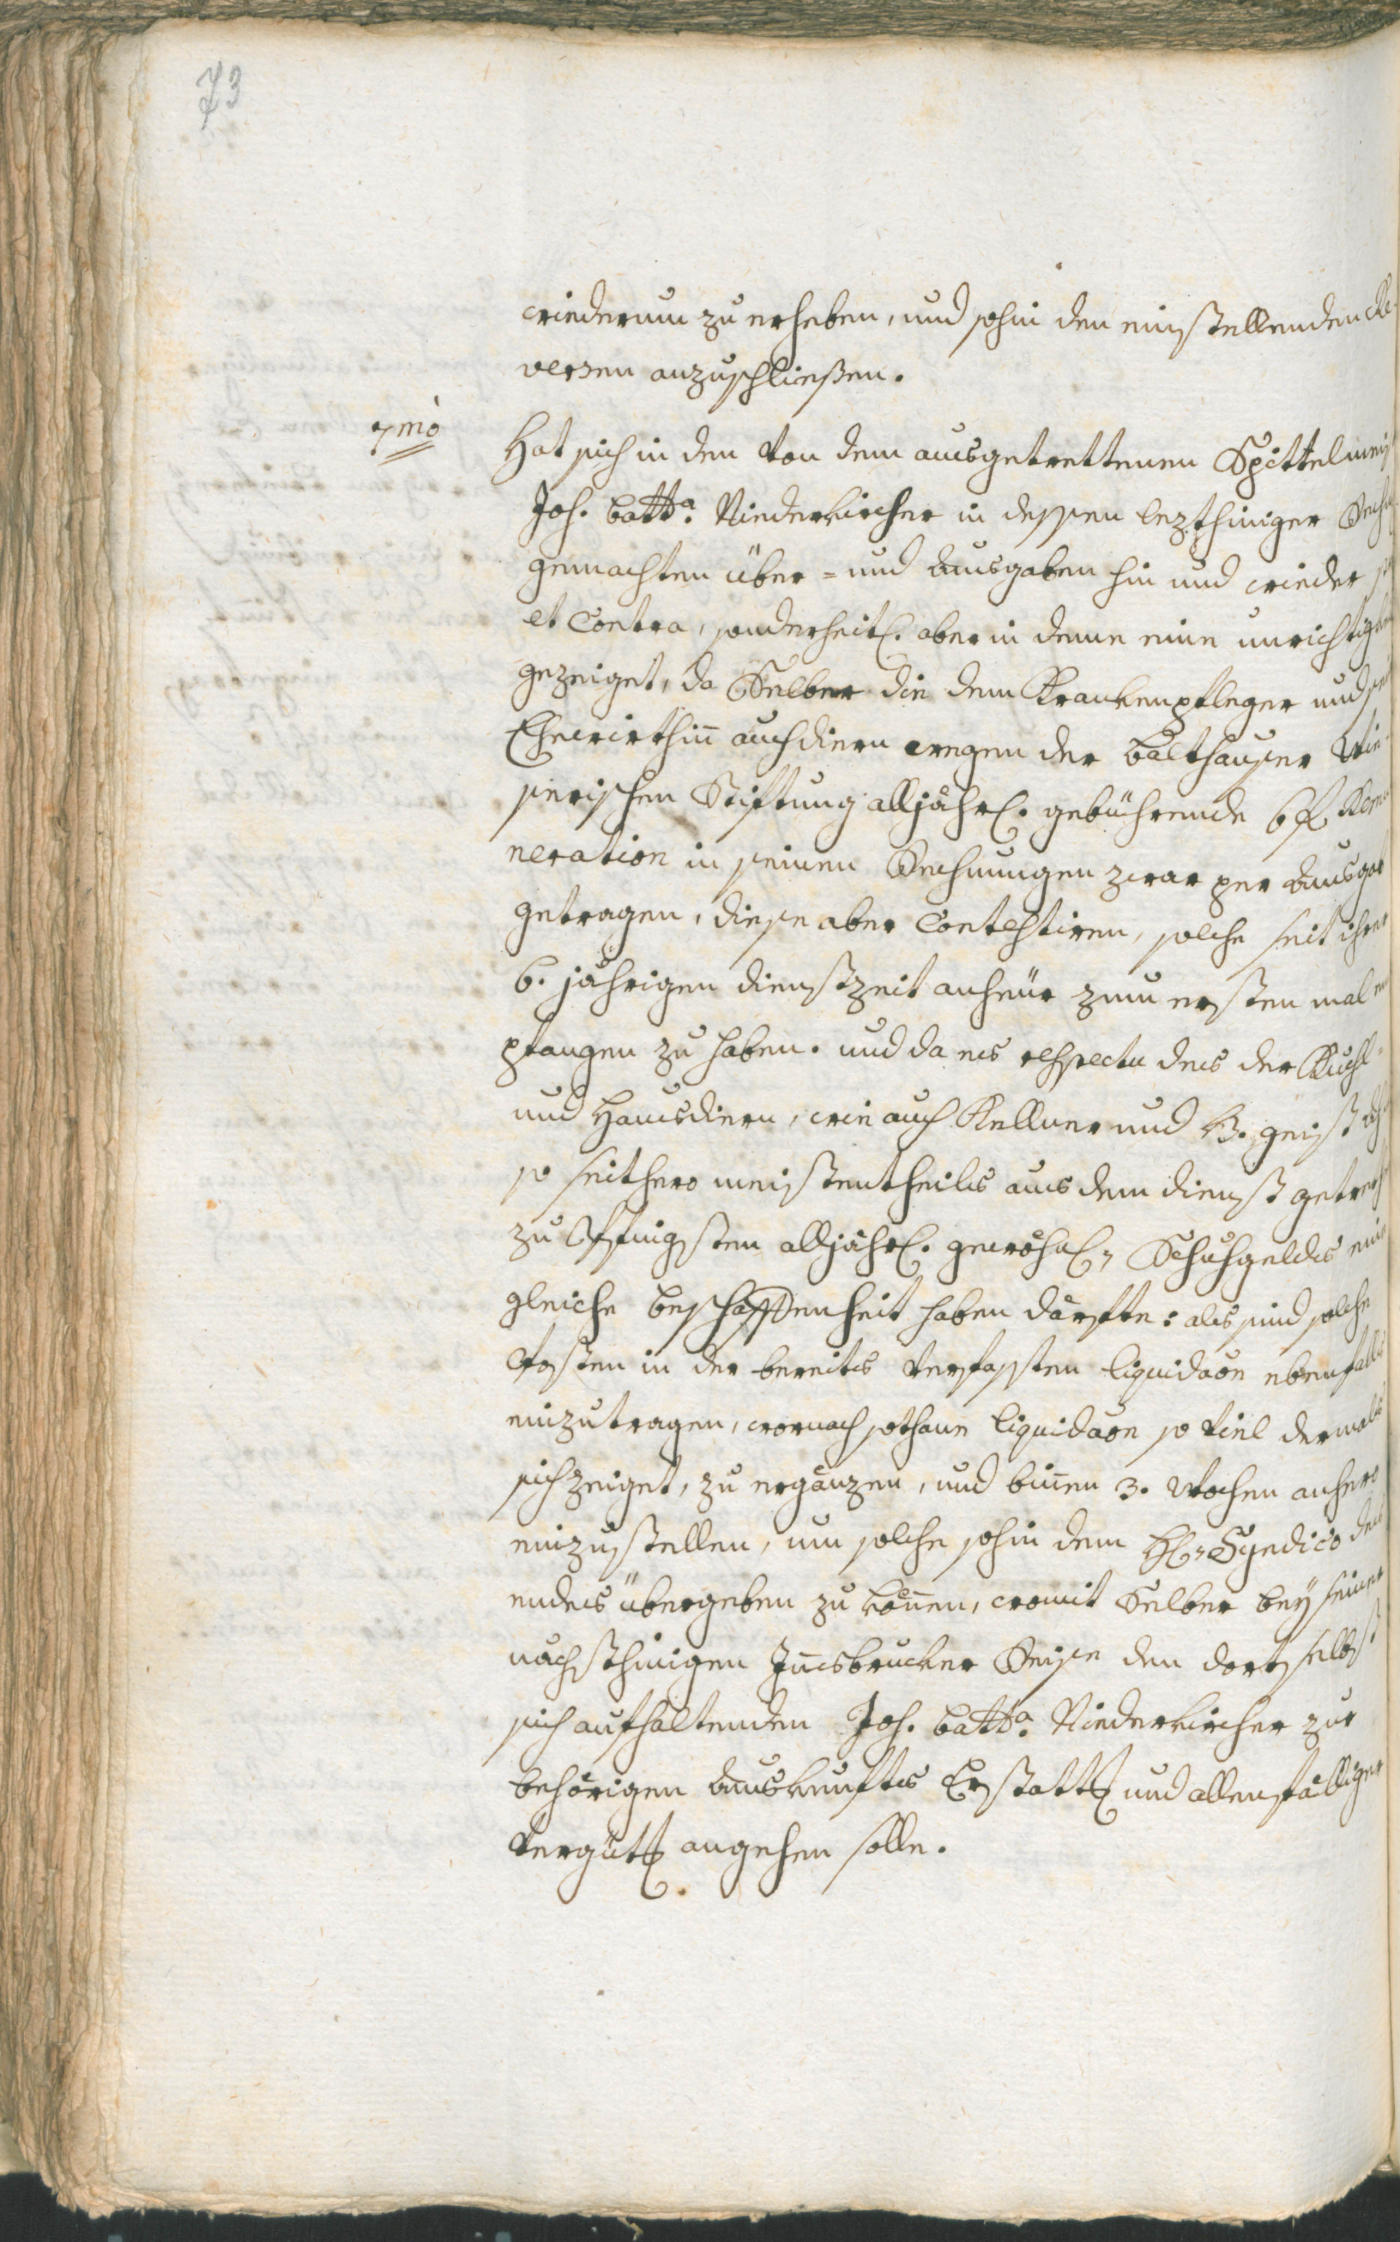 73
wiederum zu erheben, und sohin den einstellenden Re
versen anzuschließen.
7mò
Hat sich in den von dem ausgetrettenen Spittelmeis
Joh. Batta. Niederkircher in dessen lezthiniger Rechn
gemachten über- und Ausgaben hin und wieder p
et Contra, sonderheitl. aber in deme eine unrichtigk
gezeiget, da Selber die dem Krankenpfleger und sei
Ehewirthin̄ auch diern wegen der Balthauser Wie-
serischen Stiftung alljährl. gebührende 6 f Remu
neration in seinen Rechnungen zwar per Ausgab
getragen, diese aber Contestiren, solche seit ihrer
6. jährigen dienstzeit anheür zum ersten mal em
pfangen zu haben. und da es respectu des der Kuchl-
und Hausdiern, wie auch Kellner und
so seithero meistentheils aus dem dienst getretten
zu Pfingsten alljährl. gewöhnl. Schuhgeldes ein
gleiche beschaffenheit haben därfte: als sind solche
Posten in der bereits verfassten liquidaōn ebenfalls
einzutragen, wornach sothane liquidaōn so viel dermals
sich zeiget, zu ergänzen, und bin̄en 3. Wochen anhero
einzustellen, um solche sohin dem H. Syndico den
endes übergeben zu kön̄en, womit Selber bey seiner
nächsthinigen In̄sbrucker Reise den dortselbst
sich aufhaltenden Joh. Batta. Niederkircher zur
behörigen Auskunfts Erstattg und allenfälliger
Vergütg angehen solle.